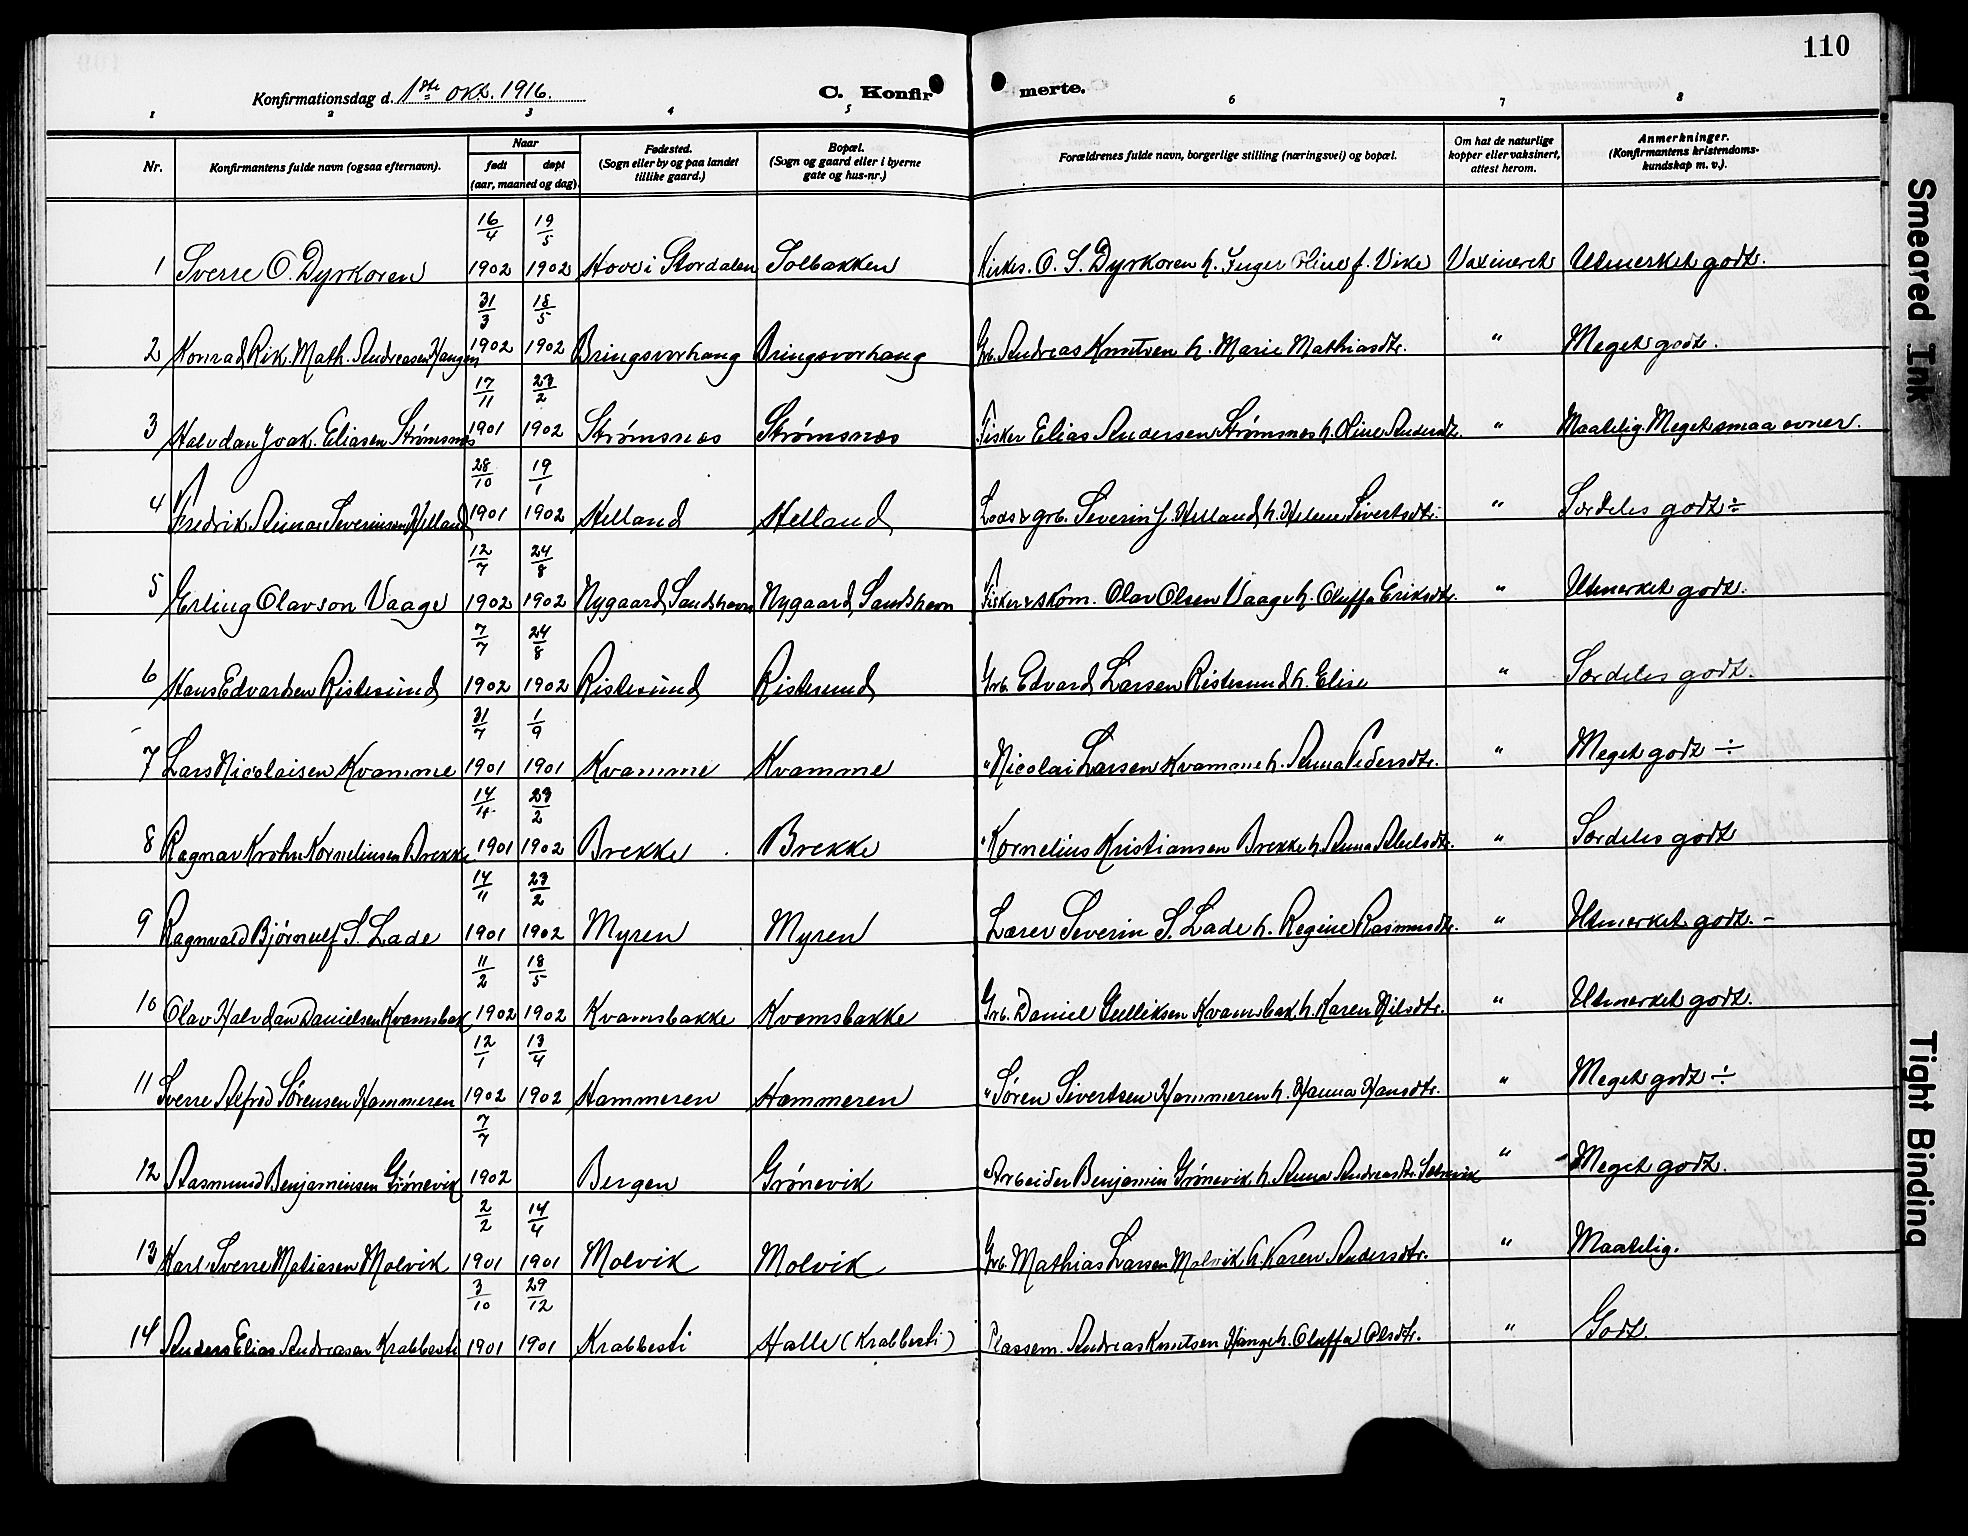 110
Konfirmationsdag d. 1ste okt. 1916.
C. Konfirmerte.
1 2 3 4 5 6 7 8
Nr.
Konfirmantens fulde navn (ogsaa efternavn).
Naar
født
døpt
(aar, maaned og dag)
Fødested.
(Sogn eller by og paa landet
tillike gaard.)
Bopæl.
(Sogn og gaard eller i byerne
gate og hus-nr.)
Forældrenes fulde navn, borgerlige stilling (næringsvei) og bopæl.
Om hat de naturlige
kopper eller vaksinert,
attest herom.
Anmerkninger.
(Konfirmantens kristendoms-
kundskap m. v.).
16/4 19/5
1 Sverre O. Dyrkoren 1902 1902 Hove i Stordalen Solbakken Kirkes. O. S. Dyrkoren h. Inger Oline f. Vike Vaxineret Utmerket godt.
31/3 18/5
2 Konrad Rik. Math. Andreasen Haugen 1902 1902 Bringsvorhaug Bringsvorhaug Grb. Andreas Knutsen h. Marie Mathiasdtr. " Meget godt.
17/11 23/2
3 Halvdan Joak. Eliasen Strømsnes 1901 1902 Strømsnes Strømsnes Fisker Elias Andersen Strømsnes h. Oline Andersdtr. " Maatelig. Meget smaa evner.
28/10 19/1
4 Fredrik Einar Severinsen Helland 1901 1902 Helland Helland Lods & grb. Severin J. Helland h. Helene Sivertsdtr. " Særdeles godt ÷
12/7 24/8
5 Erling Olavson Vaage 1902 1902 Nygaard, Sandshavn Nygaard, Sandshavn Fisker & skom. Olav Olsen Vaage h. Oluffa Eriksdtr. " Utmerket godt.
7/7 24/8
6 Hans Edvardsen Ristesund 1902 1902 Ristesund Ristesund Grb. Edvard Larsen Ristesund h. Elise " Særdeles godt.
31/7 1/9
7 Lars Nicolaisen Kvamme 1901 1901 Kvamme Kvamme " Nicolai Larsen Kvamme h. Anna Pedersdtr. " Meget godt ÷
14/11 23/2
8 Ragnar Krohn Korneliusen Brekke 1901 1902 Brekke Brekke " Kornelius Kristiansen Brekke h. Anna Abelsdtr. " Særdeles godt
14/11 23/2
9 Ragnvald Bjørnulf S. Lade 1901 1902 Myren Myren Lærer Severin S. Lade h. Regine Rasmusdtr. " Utmerket godt. -
11/2 18/5
10 Olav Halvdan Danielsen Kvamsbak 1902 1902 Kvamsbakke Kvamsbakke Grb. Daniel Gulliksen Kvamsbak h. Karen Nilsdtr. " Utmerket godt.
12/1 13/4
11 Sverre Alfred Sørensen Hammeren 1902 1902 Hammeren Hammeren " Søren Sivertsen Hammeren h. Hanna Hansdtr. " Meget godt ÷
7/7
12 Aasmund Benjaminsen Grønevik 1902 Bergen Grønevik Arbeider Benjamin Grønevik h. Anna Andreasdtr. " Meget godt.
2/2 14/4
13 Karl Sverre Matiasen Molvik 1901 1901 Molvik Molvik Grb. Mathias Larsen Molvik h. Karen Andersdtr. " Maatelig.
3/10 29/12
14 Anders Elias Andreasen Krabbesti 1901 1901 Krabbesti Halle (Krabbesti) Plassem. Andreas Knutsen h. Oluffa Olsdtr. " Godt
Smeared Ink
Tight Binding